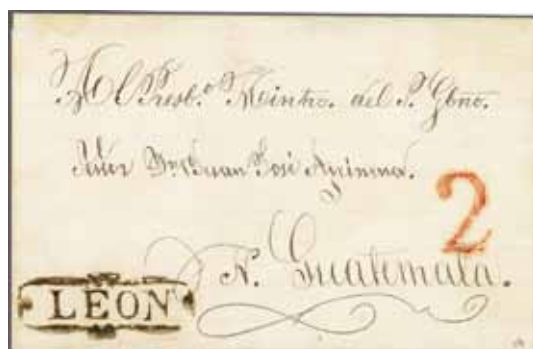 Al Presb.º Mintro. del S. Gbno.
Señor Dn. Juan José Aycinena.
2
N. Guatemala.
LEON